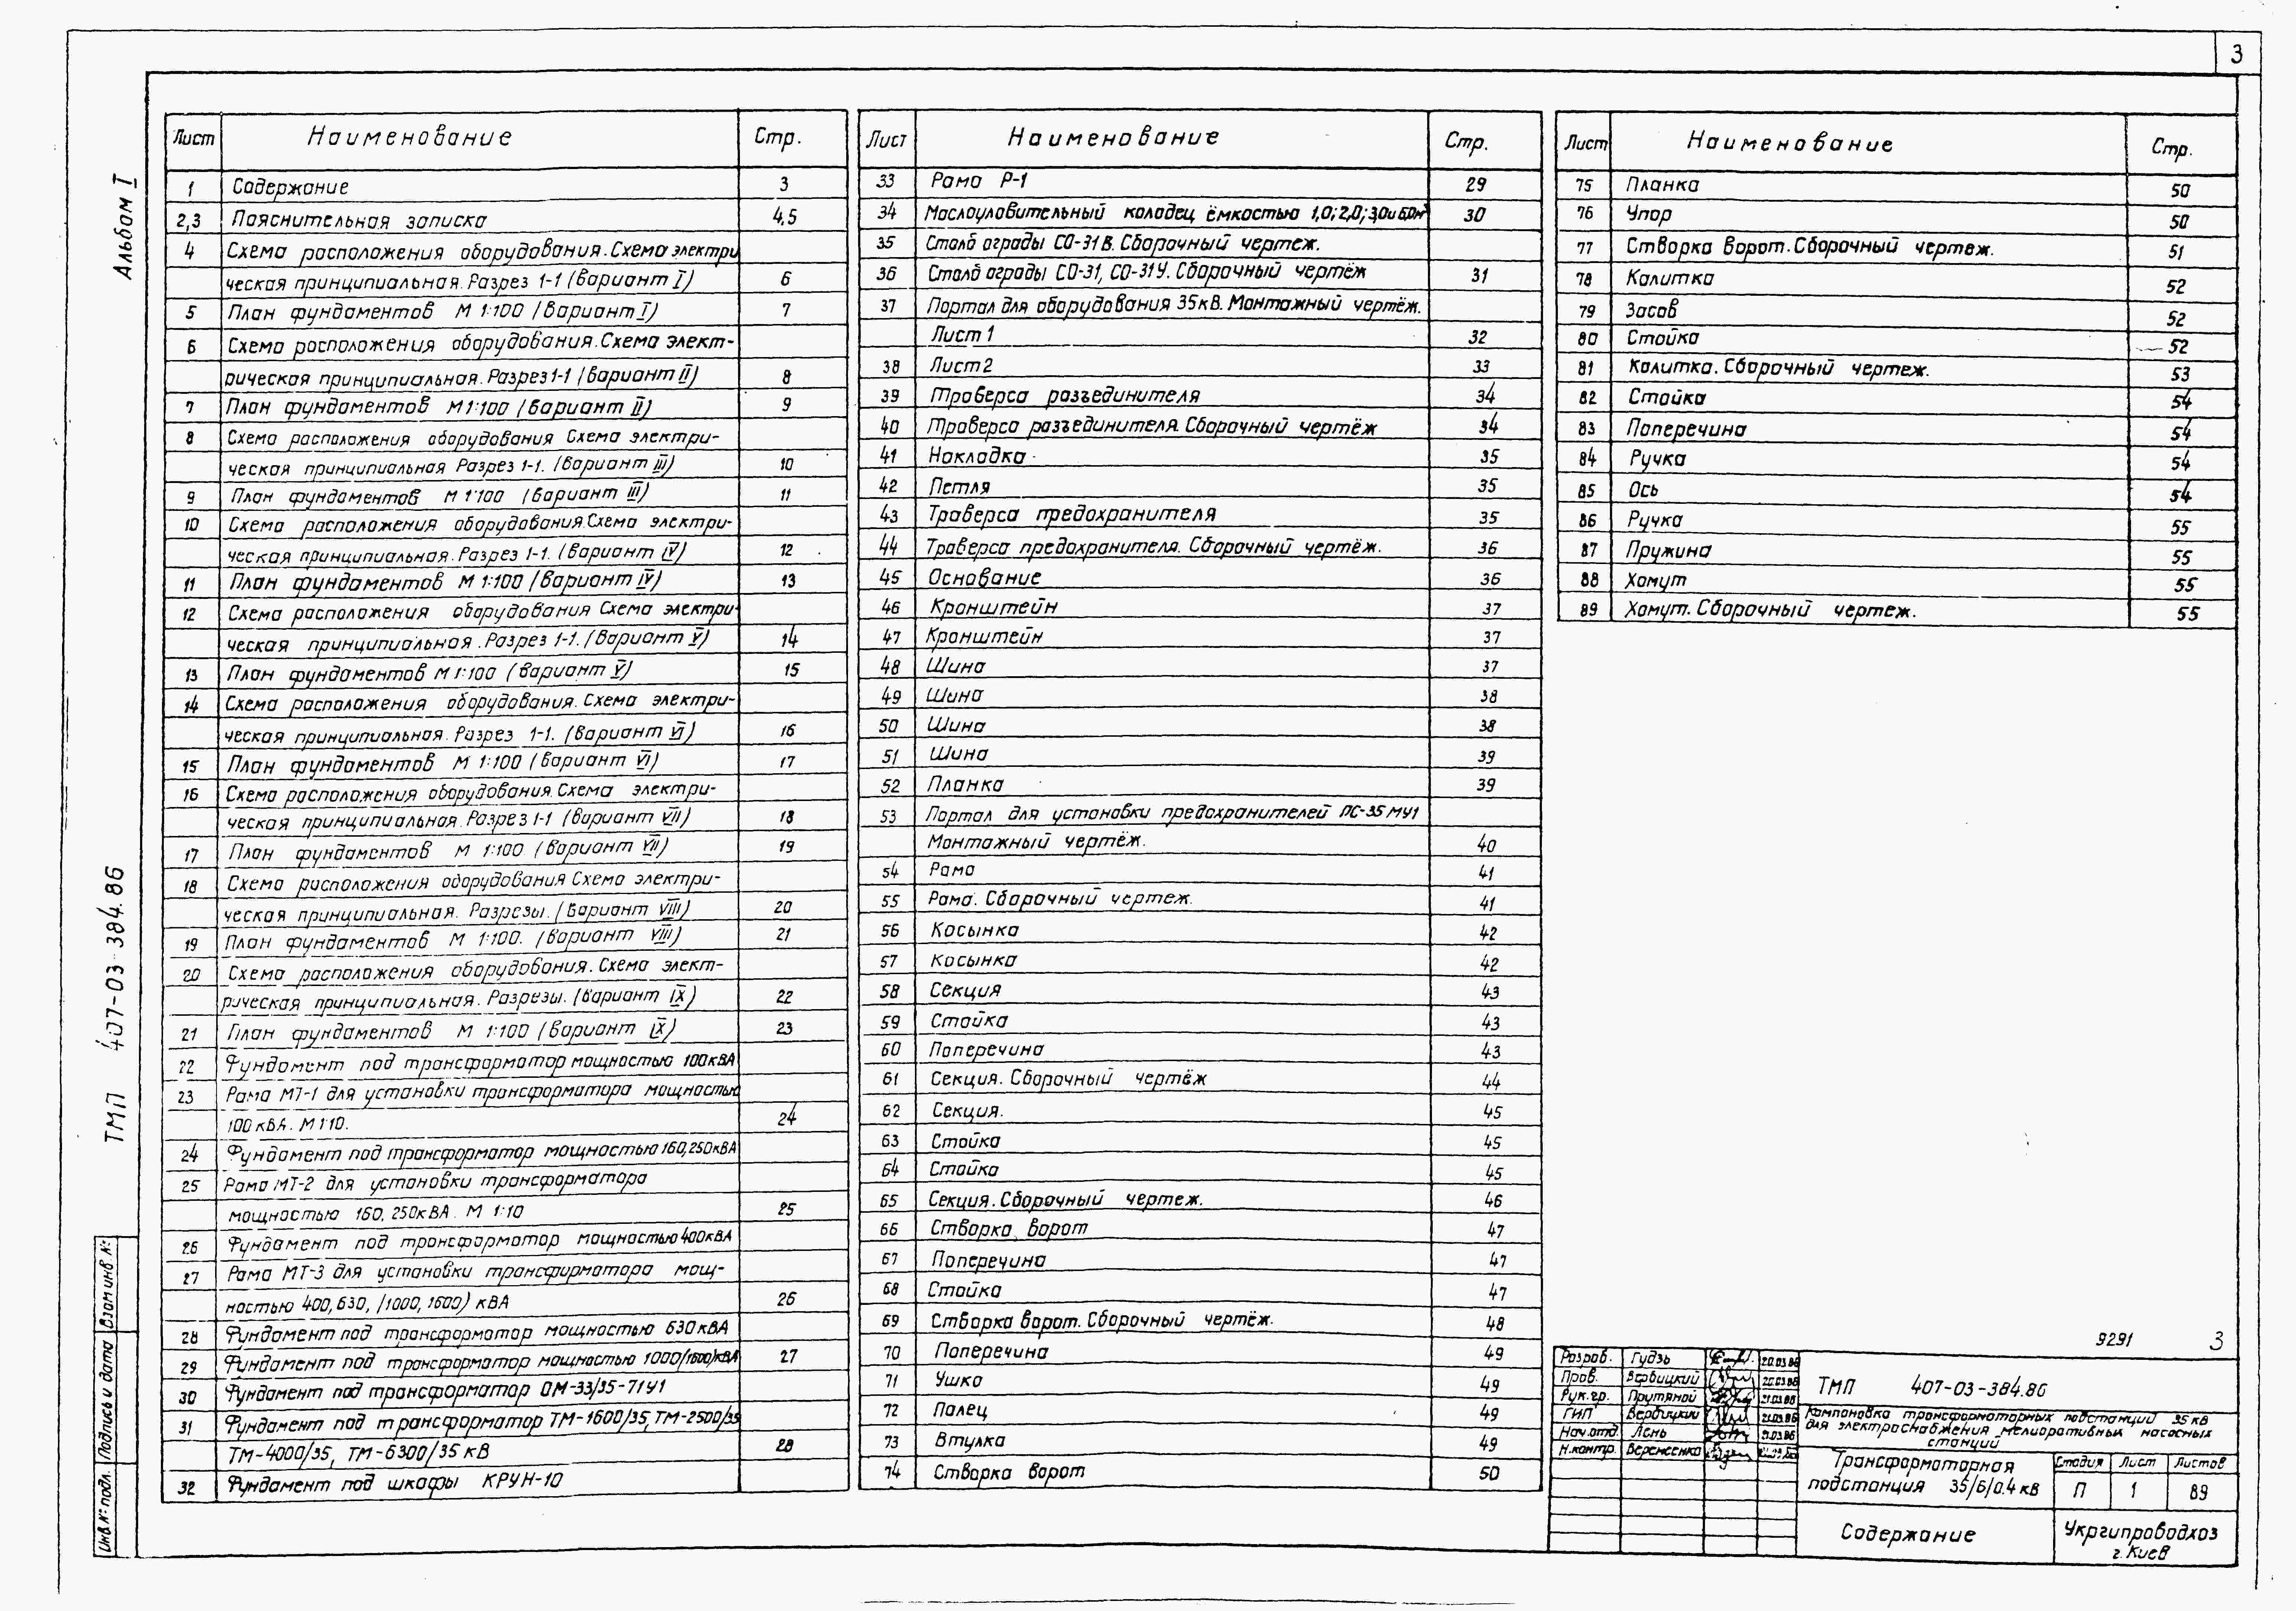 3
Альбом I
ТМП 407-03-384.86
Инв.№ подл. Подпись и дата Взам инв.№
Лист Наименование Стр.
1 Содержание 3
2,3 Пояснительная записка 4,5
4 Схема расположения оборудования. Схема электри
ческая принципиальная. Разрез 1-1 (вариант I) 6
5 План фундаментов М 1:100 (вариант I) 7
6 Схема расположения оборудования. Схема элект-
рическая принципиальная. Разрез 1-1 (вариант II) 8
7 План фундаментов М 1:100 (вариант II) 9
8 Схема расположения оборудования Схема электри-
ческая принципиальная Разрез 1-1. (вариант III) 10
9 План фундаментов М 1:100 (вариант III) 11
10 Схема расположения оборудования. Схема электри-
ческая принципиальная. Разрез 1-1. (вариант IV) 12
11 План фундаментов М 1:100 (вариант IV) 13
12 Схема расположения оборудования Схема электри-
ческая принципиальная. Разрез 1-1. (вариант V) 14
13 План фундаментов М 1:100 (вариант V) 15
14 Схема расположения оборудования. Схема электри-
ческая принципиальная. Разрез 1-1. (вариант VI) 16
15 План фундаментов М 1:100 (вариант VI) 17
16 Схема расположения оборудования. Схема электри-
ческая принципиальная. Разрез 1-1 (вариант VII) 18
17 План фундаментов М 1:100 (вариант VII) 19
18 Схема расположения оборудования Схема электри-
ческая принципиальная. Разрезы. (вариант VIII) 20
19 План фундаментов М 1:100. (вариант VIII) 21
20 Схема расположения оборудования. Схема элект-
рическая принципиальная. Разрезы. (вариант IX) 22
21 План фундаментов М 1:100 (вариант IX) 23
22 Фундамент под трансформатор мощностью 100кВА
23 Рама МТ-1 для установки трансформатора мощностью
100 кВА. М 1:10. 24
24 Фундамент под трансформатор мощностью 160,250кВА
25 Рама МТ-2 для установки трансформатора
мощностью 160, 250кВА. М 1:10 25
26 Фундамент под трансформатор мощностью 400кВА
27 Рама МТ-3 для установки трансформатора мощ-
ностью 400, 630, (1000, 1600) кВА 26
28 Фундамент под трансформатор мощностью 630кВА
29 Фундамент под трансформатор мощностью 1000(1600)кВА 27
30 Фундамент под трансформатор ОМ-33/35-71У1
31 Фундамент под трансформатор ТМ-1600/35, ТМ-2500/35
ТМ-4000/35, ТМ-6300/35 кВ 28
32 Фундамент под шкафы КРУН-10
Лист Наименование Стр.
33 Рама Р-1 29
34 Маслоуловительный колодец ёмкостью 1,0; 2,0; 3,0 и 6,0м³ 30
35 Столб ограды СО-31В. Сборочный чертеж.
36 Столб ограды СО-31, СО-31У. Сборочный чертёж 31
37 Портал для оборудования 35кВ. Монтажный чертёж.
Лист 1 32
38 Лист 2 33
39 Траверса разъединителя 34
40 Траверса разъединителя. Сборочный чертёж 34
41 Накладка 35
42 Петля 35
43 Траверса предохранителя 35
44 Траверса предохранителя. Сборочный чертёж. 36
45 Основание 36
46 Кронштейн 37
47 Кронштейн 37
48 Шина 37
49 Шина 38
50 Шина 38
51 Шина 39
52 Планка 39
53 Портал для установки предохранителей ПС-35 МУ1
Монтажный чертёж. 40
54 Рама 41
55 Рама. Сборочный чертеж. 41
56 Косынка 42
57 Косынка 42
58 Секция 43
59 Стойка 43
60 Поперечина 43
61 Секция. Сборочный чертёж 44
62 Секция. 45
63 Стойка 45
64 Стойка 45
65 Секция. Сборочный чертеж. 46
66 Створка ворот 47
67 Поперечина 47
68 Стойка 47
69 Створка ворот. Сборочный чертёж. 48
70 Поперечина 49
71 Ушко 49
72 Палец 49
73 Втулка 49
74 Створка ворот 50
Лист Наименование Стр.
75 Планка 50
76 Упор 50
77 Створка ворот. Сборочный чертеж. 51
78 Калитка 52
79 Засов 52
80 Стойка 52
81 Калитка. Сборочный чертеж. 53
82 Стойка 54
83 Поперечина 54
84 Ручка 54
85 Ось 54
86 Ручка 55
87 Пружина 55
88 Хомут 55
89 Хомут. Сборочный чертеж. 55
9291 3
Разраб. Гудзь 20.03.86
Пров. Вербицкий 20.03.86
Рук.гр. Прутяной 21.03.86
ГИП Вербицкий 21.03.86
Нач.отд. Лень 21.03.86
Н.контр. Веремеенко
ТМП 407-03-384.86
Компановка трансформаторных подстанций 35 кв
для электроснабжения мелиоративных насосных
станций
Трансформаторная
подстанция 35/6/0.4 кв
Стадия Лист Листов
П 1 89
Содержание
Укргипроводхоз
г. Киев